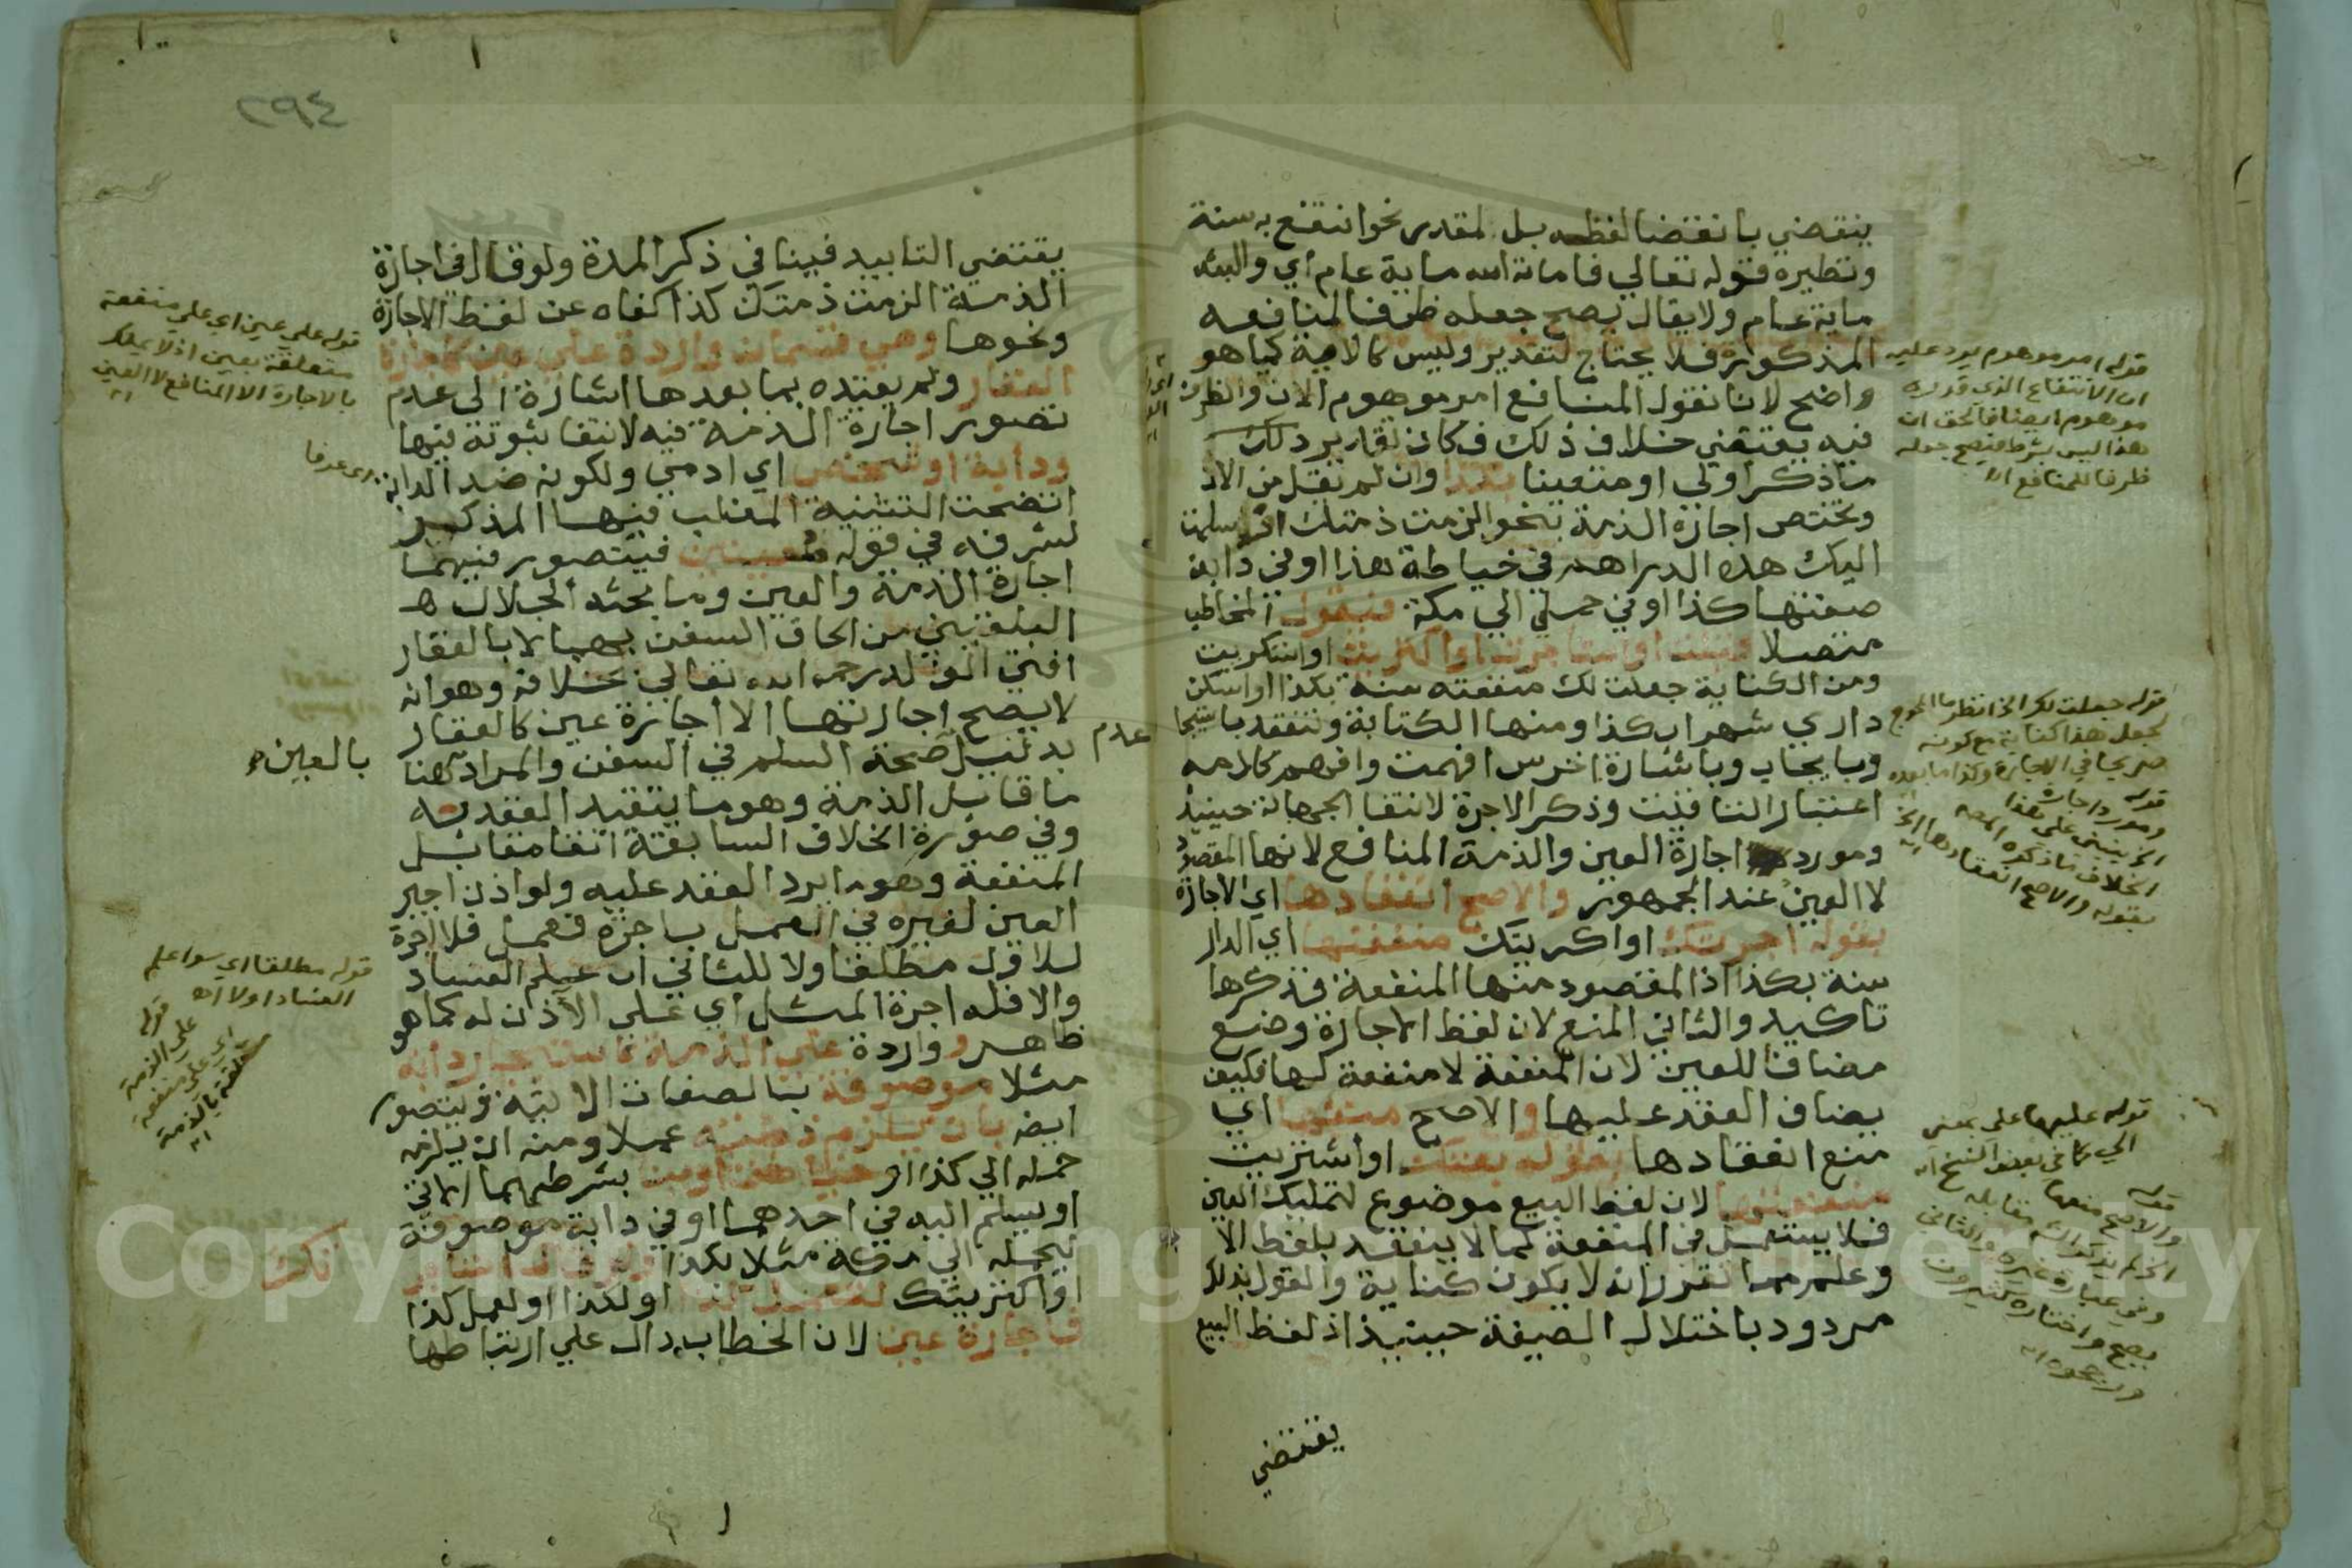 ينقضي بانقضا لفظه بل لمقدر نحو انتفع به سنة
ونظيره قوله تعالي فاماته الله ماية عام اي والبثه
ماية عام ولا يقال يصح جعله ظرفا لمنافعه
المذكورة فلا يحتاج لتقدير وليس كالاية كما هو
واضح لانا نقول المنافع امر موهوم الان والظرف
فيه يقتضي خلاف ذلك فكان تقدير ذلك
ما ذكر اولي او متعينا بكذا وان لم تقل من الان
وتختص اجارة الذمة بنحو الزمت ذمتك او سلمت
اليك هذه الدراهم في خياطة هذا او في دابة
صفتها كذا او في حملي الي مكة فيقول المخاطب
متصلا قبلت او استاجرت او اكتريت او استكريت
ومن الكناية جعلت لك منفعته سنة بكذا او اسكن
داري شهرا بكذا ومنها الكتابة وتنعقد باستيجا
وبايجاب وباشارة اخرس افهمت وافهم كلامه
اعتبار التاقيت وذكر الاجرة لانتفا الجهالة حينيذ
ومورد اجارة العين والذمة المنافع لانها المقصود
لا العين عند الجمهور والاصح انعقادها اي الاجارة
بقوله اجرتك او اكريتك منفعتها اي الدار
سنة بكذا اذ المقصود منها المنفعة فذكرها
تاكيد والثاني المنع لان لفظ الاجارة وضع
مضافا للعين لان المنفعة لا منفعة لها فكيف
يضاف العقد عليها والاصح منعها اي
منع انعقادها بقوله بعتك او اشتريت
منفعتها لان لفظ البيع موضوع لتمليك العين
فلا يستعمل في المنفعة كما لا ينعقد بلفظ الا
وعلم مما تقرر انه لا يكون كناية والقول بذلك
مردود باختلال الصيغة حينيذ اذ لفظ البيع
يقتضي
قوله امر موهوم يرد عليه
ان الانتفاع الذي قدره
موهوم ايضا فالحق ان
هذا ليس بشرط فيصح جعله
ظرفا للمنافع اه
قوله جعلت لك الخ انظر ما المحوج
لجعل هذا كناية مع كونه
صريحا في الاجارة وكذا ما بعده
قوله عليها علي بمعني
الي كما في بعض النسخ اه
٢٩٤
يقتضي التابيد فينافي ذكر المدة ولو قال في اجارة
الذمة الزمت ذمتك كذا كفاه عن لفظ الاجارة
ونحوها وهي قسمان واردة علي عين كاجارة
العقار ولم يقيده بما بعدها اشارة الي عدم
تصور اجارة الذمة فيه لانتفا ثبوته فيها
ودابة او شخص اي ادمي ولكونه ضد الدابة
اتضحت التثنية المغلب فيها المذكر
لشرفه في قوله معينين فيتصور فيهما
اجارة الذمة والعين وما بحثه الجلال
البلقيني من الحاق السفن بهما لا بالعقار
افتي الوالد رحمه الله تعالي بخلافه وهو انه
لا يصح اجارتها الا اجارة عين كالعقار
بدليل عدم صحة السلم في السفن والمراد بالعين هنا
ما قابل الذمة وهو ما يتقيد العقد به
وفي صورة الخلاف السابقة انفا مقابل
المنفعة وهو ما يرد العقد عليه ولو اذن اجير
العين لغيره في العمل باجرة فعمل فلا اجرة
للاول مطلقا ولا للثاني ان علم الفساد
والا فله اجرة المثل اي علي الاذن له كما هو
ظاهر وواردة علي الذمة كاستيجار دابة
مثلا موصوفة بالصفات الاتية فيتصور
ايضا بان يلزم ذمته عملا ومنه ان يلزمه
حمله الي كذا او خياطة او بنا بشرطهما الاتي
او يسلم اليه في احدهما او في دابة موصوفة
تحمله الي مكة مثلا بكذا ولو قال استاجرتك
او اكتريتك لتعمل كذا او لكذا او لعمل كذا
فاجارة عين لان الخطاب دال علي ارتباطها
قوله علي عين اي علي منفعة
متعلقة بعين اذ لا يملك
بالاجارة الا المنافع لا العين
اه
اي عرفا
قوله مطلقا اي سوا علم
الفساد او لا اه
قوله
علي الذمة
اي علي منفعة
متعلقة بالذمة
اه